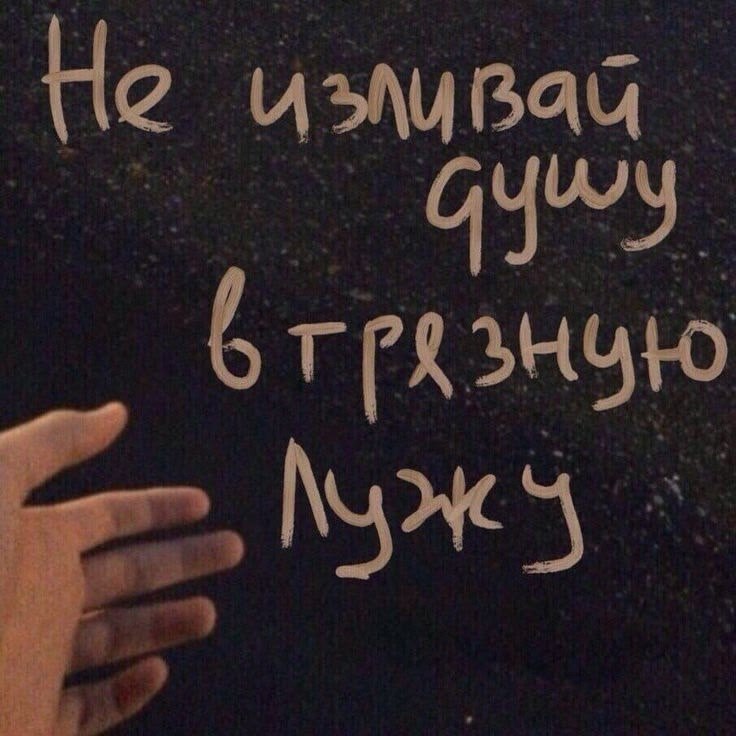 Не изливай
душу
в грязную
Лужу